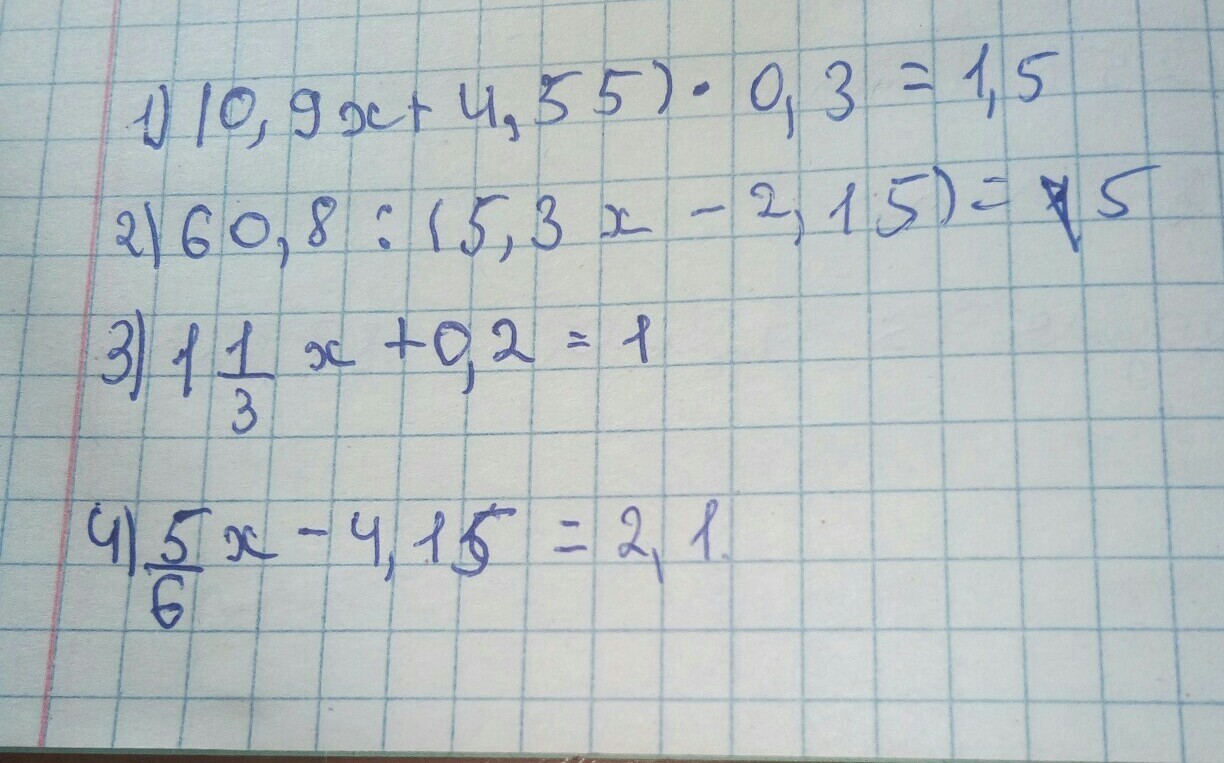 1) (0,9x + 4,55) · 0,3 = 1,5
2) 60,8 : (5,3x - 2,15) = 5
3) 1 1/3 x + 0,2 = 1
4) 5/6 x - 4,15 = 2,1.